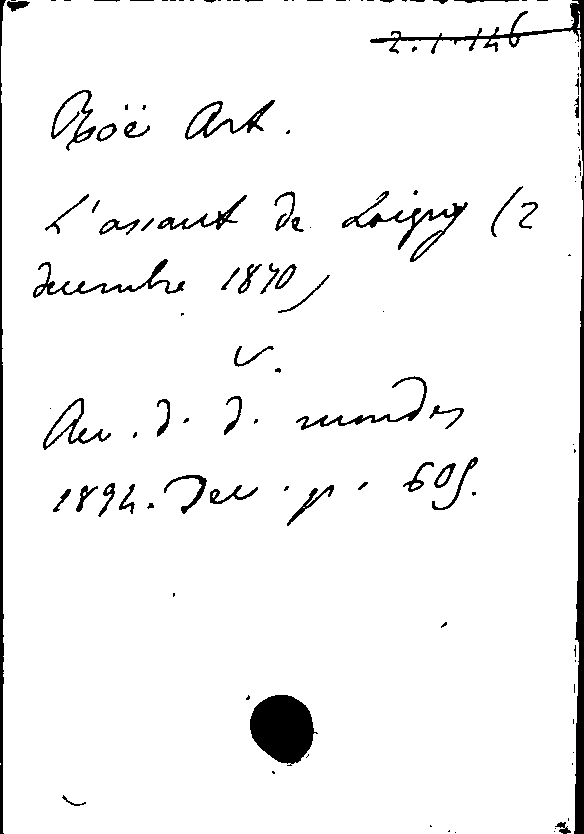 2.1.146
Roë Art.
L'assaut de Loigny (2
decembre 1870)
v.
Rev. d. d. mondes
1894. Dec. p. 605.